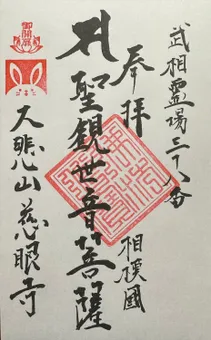 武相霊場三十八番
奉拝 相模國
聖観世音菩薩
大悲山 慈眼寺
御開帳